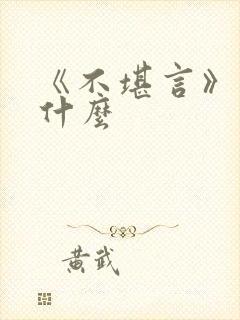 《不堪言》
什麼
黃武